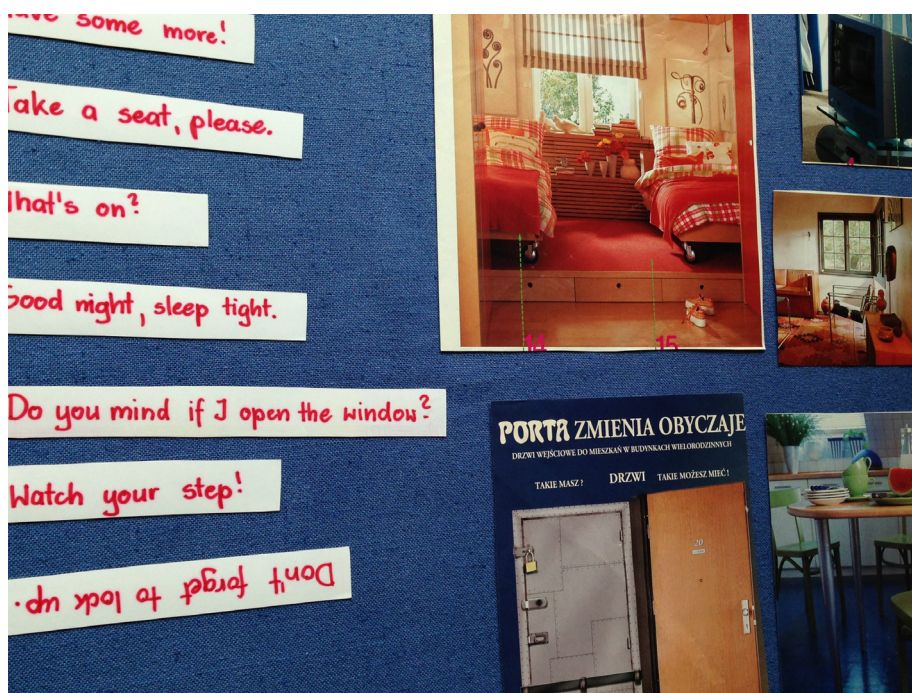 some more!
Take a seat, please.
What's on?
Good night, sleep tight.
Do you mind if I open the window?
Watch your step!
Don't forget to lock up.
14 15
PORTA ZMIENIA OBYCZAJE
DRZWI WEJŚCIOWE DO MIESZKAŃ W BUDYNKACH WIELORODZINNYCH
TAKIE MASZ? DRZWI TAKIE MOŻESZ MIEĆ!
20